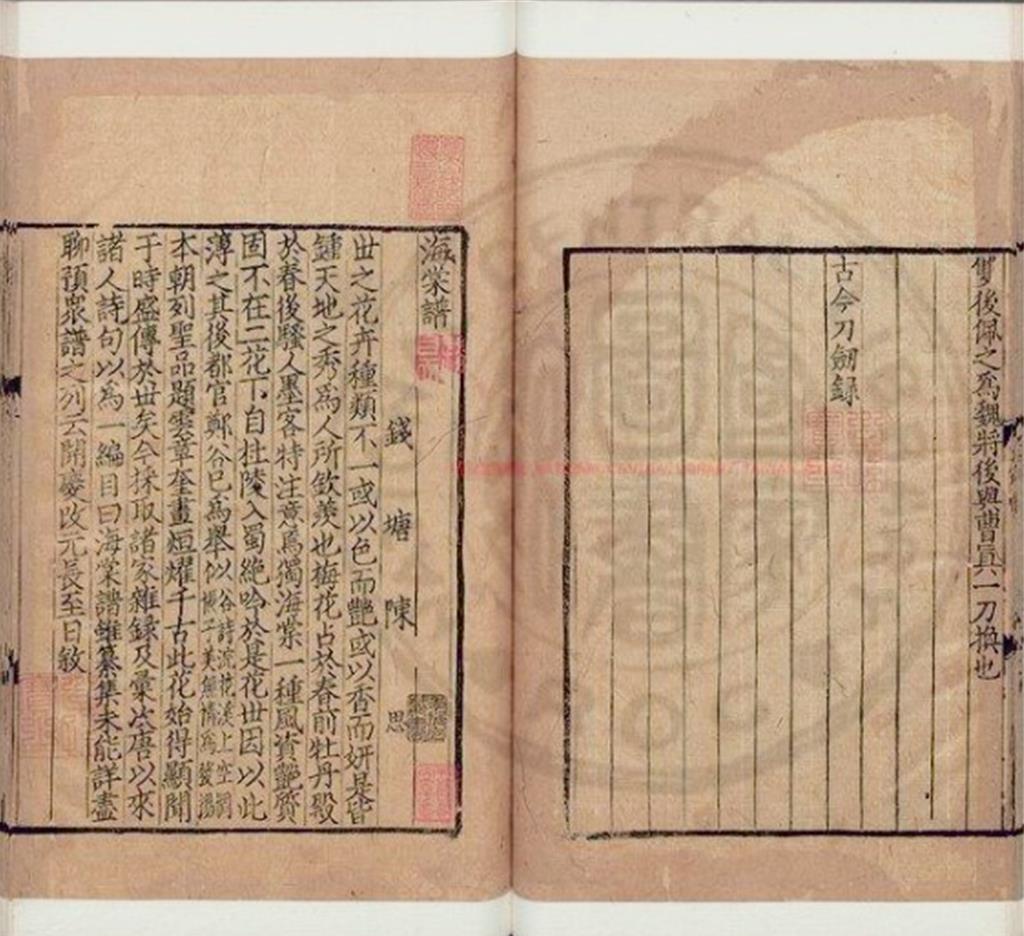 雙後佩之爲魏將後與曹眞一刀換也
古今刀劒録
海棠譜
錢塘陳 思
世之花卉種類不一或以色而豔或以香而妍是皆
鍾天地之秀爲人所欽羨也梅花占於春前牡丹殿
於春後騷人墨客特注意焉獨海棠一種風資豔質
固不在二花下自杜陵入蜀絶吟於是花世因以此
薄之其後都官鄭谷已爲舉似谷詩浣花溪上空惆悵子美無情爲發揚
本朝列聖品題雲章奎畫烜耀千古此花始得顯聞
于時盛傳於世矣今採取諸家雜録及彙次唐以來
諸人詩句以爲一編目曰海棠譜雖纂集未能詳盡
聊預衆譜之列云開慶改元長至日敘